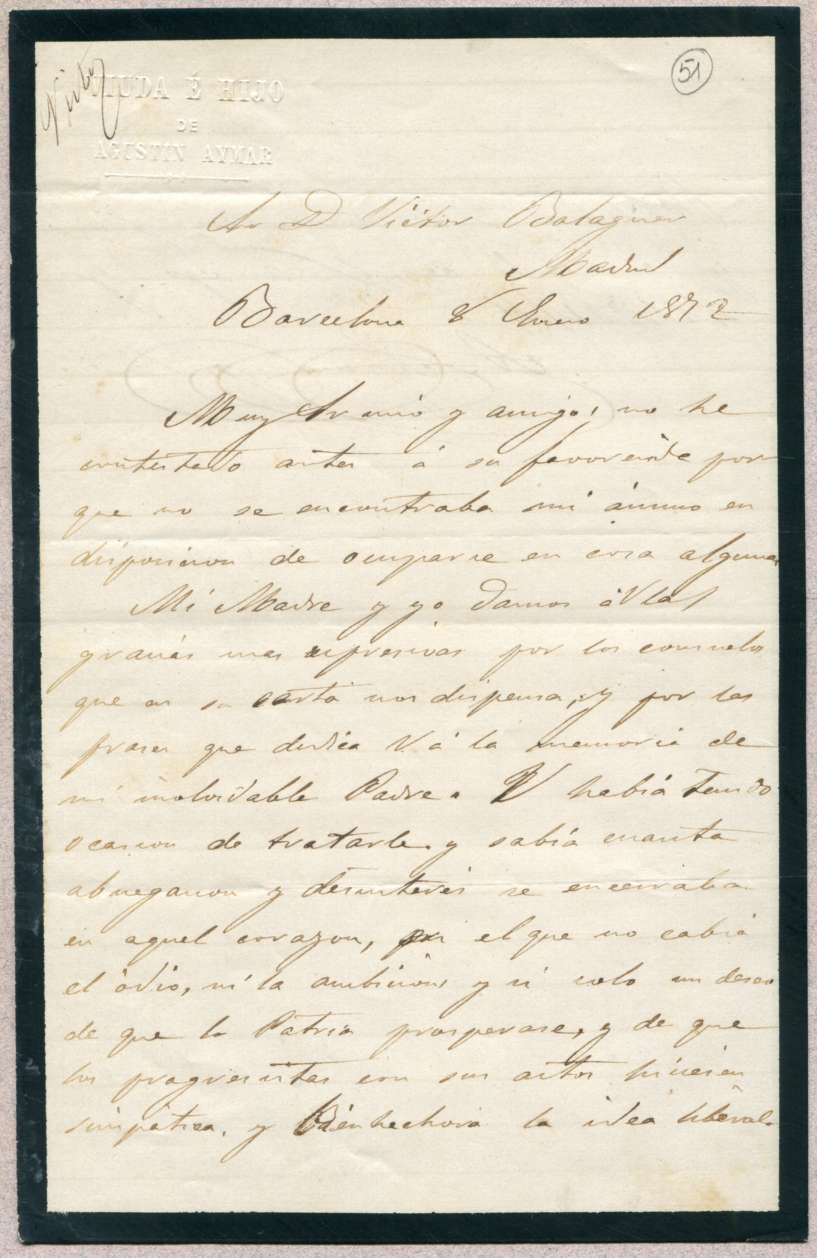 51
VIUDA É HIJO
DE
AGUSTIN AYMAR
Sr D Victor Balaguer
Madrid
Barcelona 8 Enero 1872
Muy Sr mio y amigo; no he
contestado antes á su favorecida por
que no se encontraba mi ánimo en
disposicion de ocuparse en cosa alguna
Mi Madre y yo damos á V las
gracias mas espresivas por los consuelos
que en su carta nos dispensa, y por las
frases que dedica V á la memoria de
mi inolvidable Padre. V habia tenido
ocasion de tratarle y sabia cuanta
abnegacion y desinterés se encerraba
en aquel corazon, en el que no cabia
el ódio, ni la ambicion, y si solo un deseo
de que la Patria prosperase, y de que
los progresistas con sus actos hiciesen
simpática, y bienhechora la idea liberal.